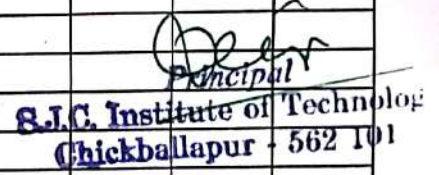 Principal
S.J.C. Institute of Technolog
Chickballapur - 562 101